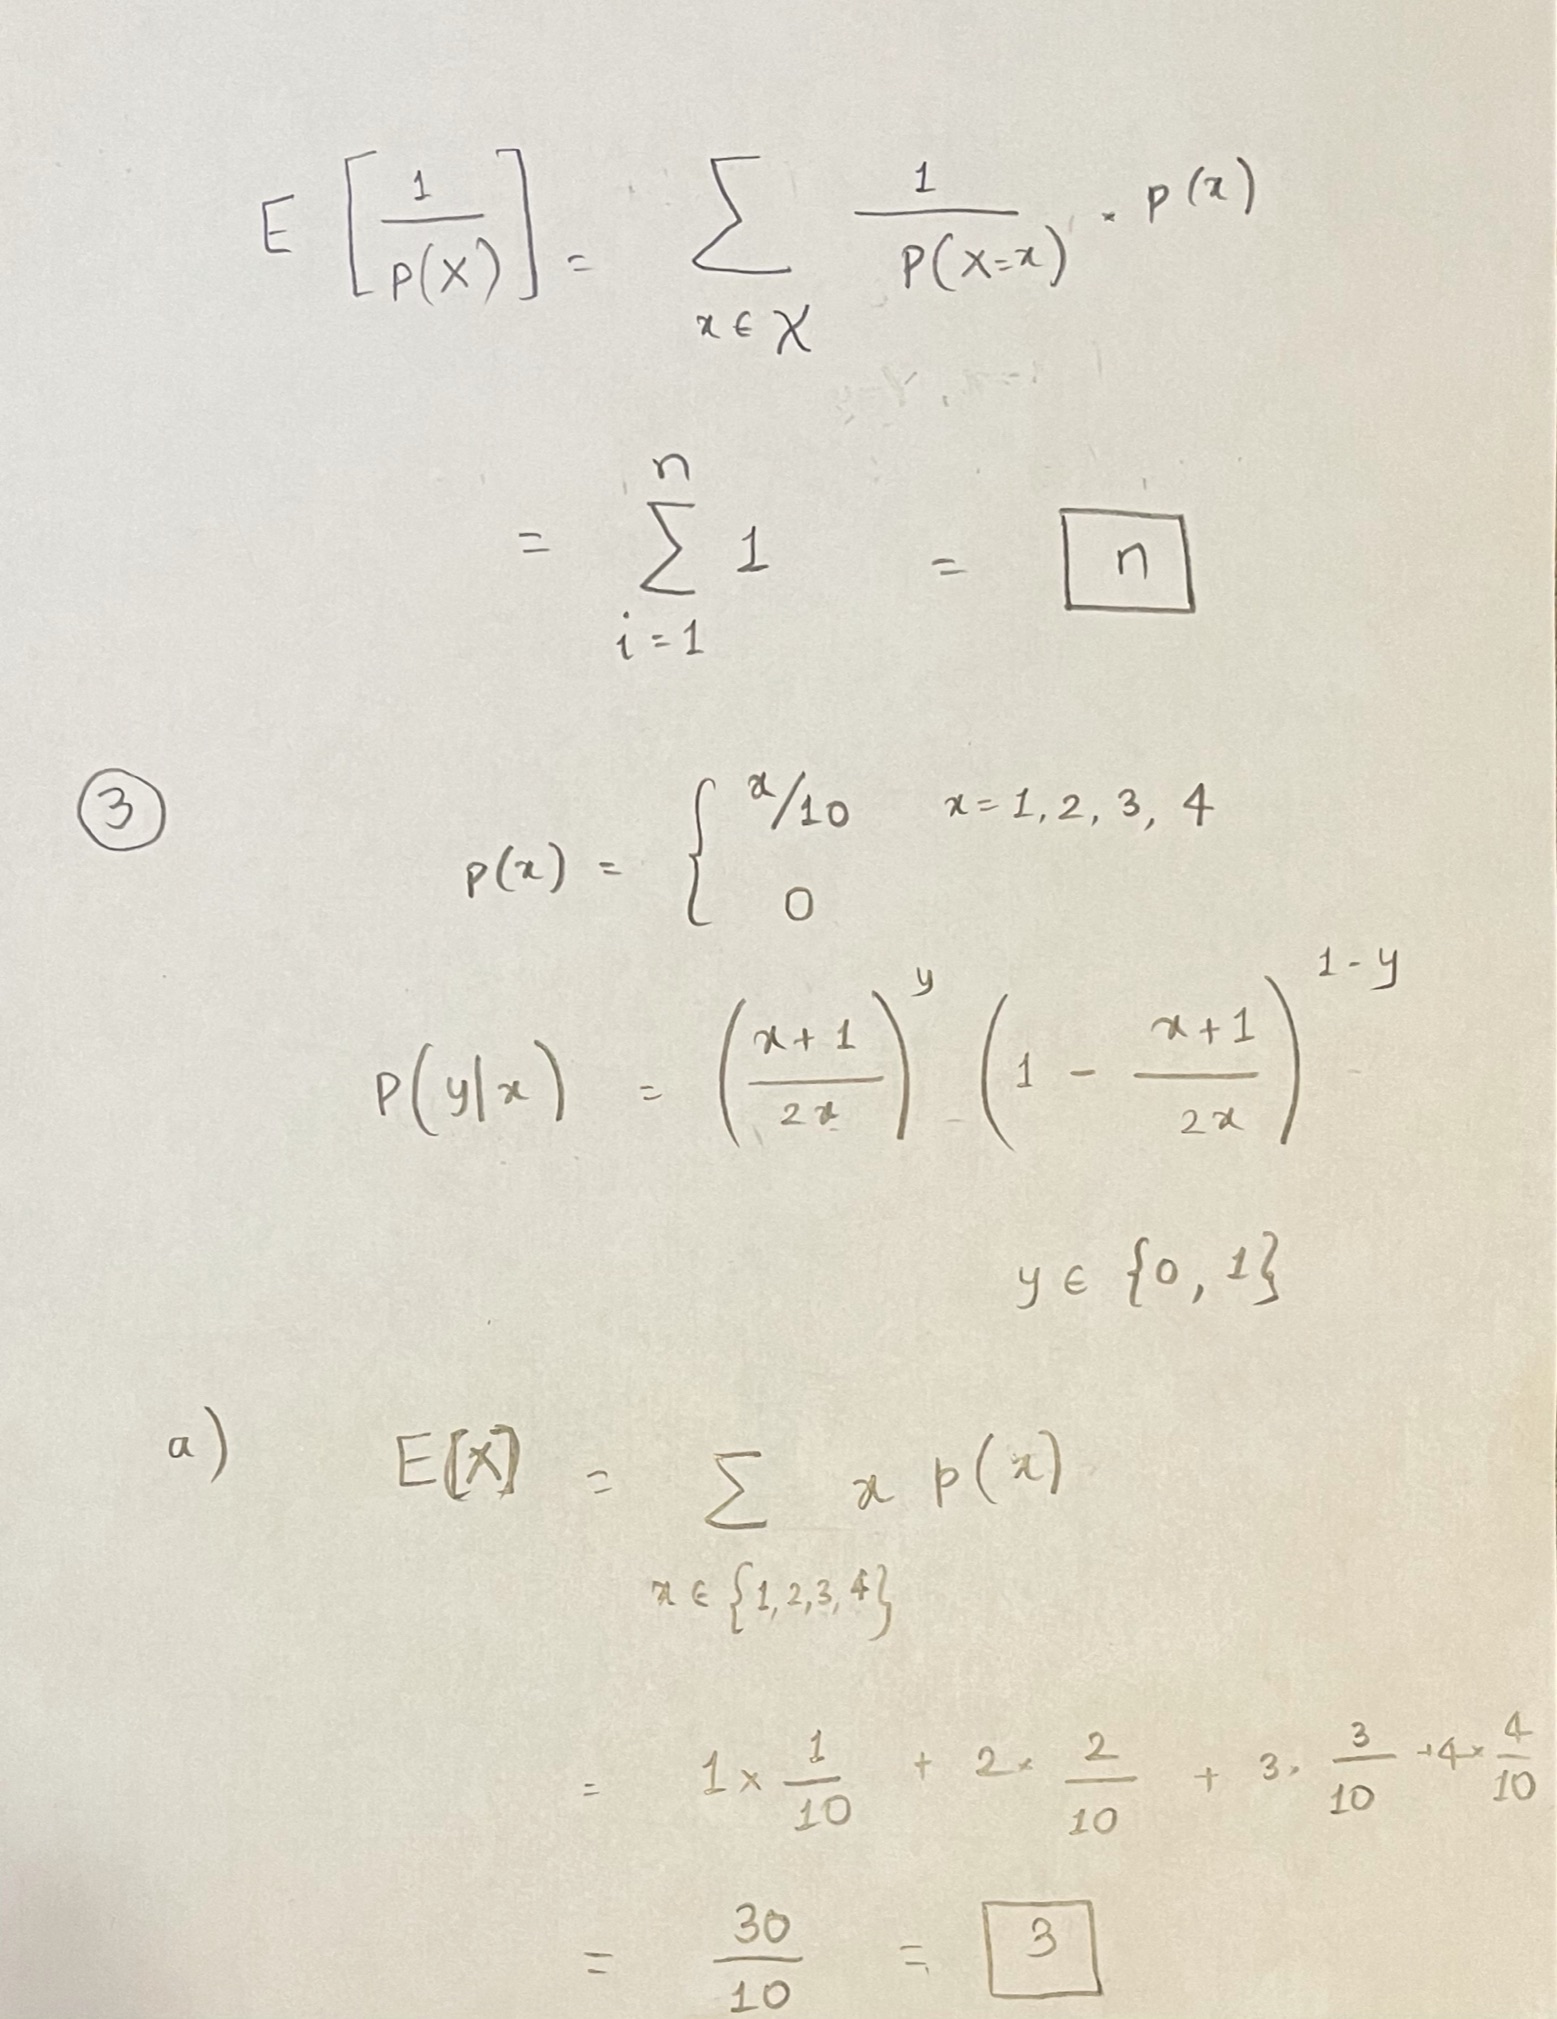 E [ 1 / P(X) ] = ∑_{x ∈ 𝒳} 1 / P(X=x) · p(x)
= ∑_{i=1}^{n} 1 = n
③ p(x) = { x/10 x = 1, 2, 3, 4
0
P(y|x) = ( (x+1) / 2x )^y ( 1 - (x+1) / 2x )^{1-y}
y ∈ {0, 1}
a) E[X] = ∑_{x ∈ {1,2,3,4}} x p(x)
= 1 × 1/10 + 2 × 2/10 + 3 · 3/10 + 4 × 4/10
= 30/10 = 3